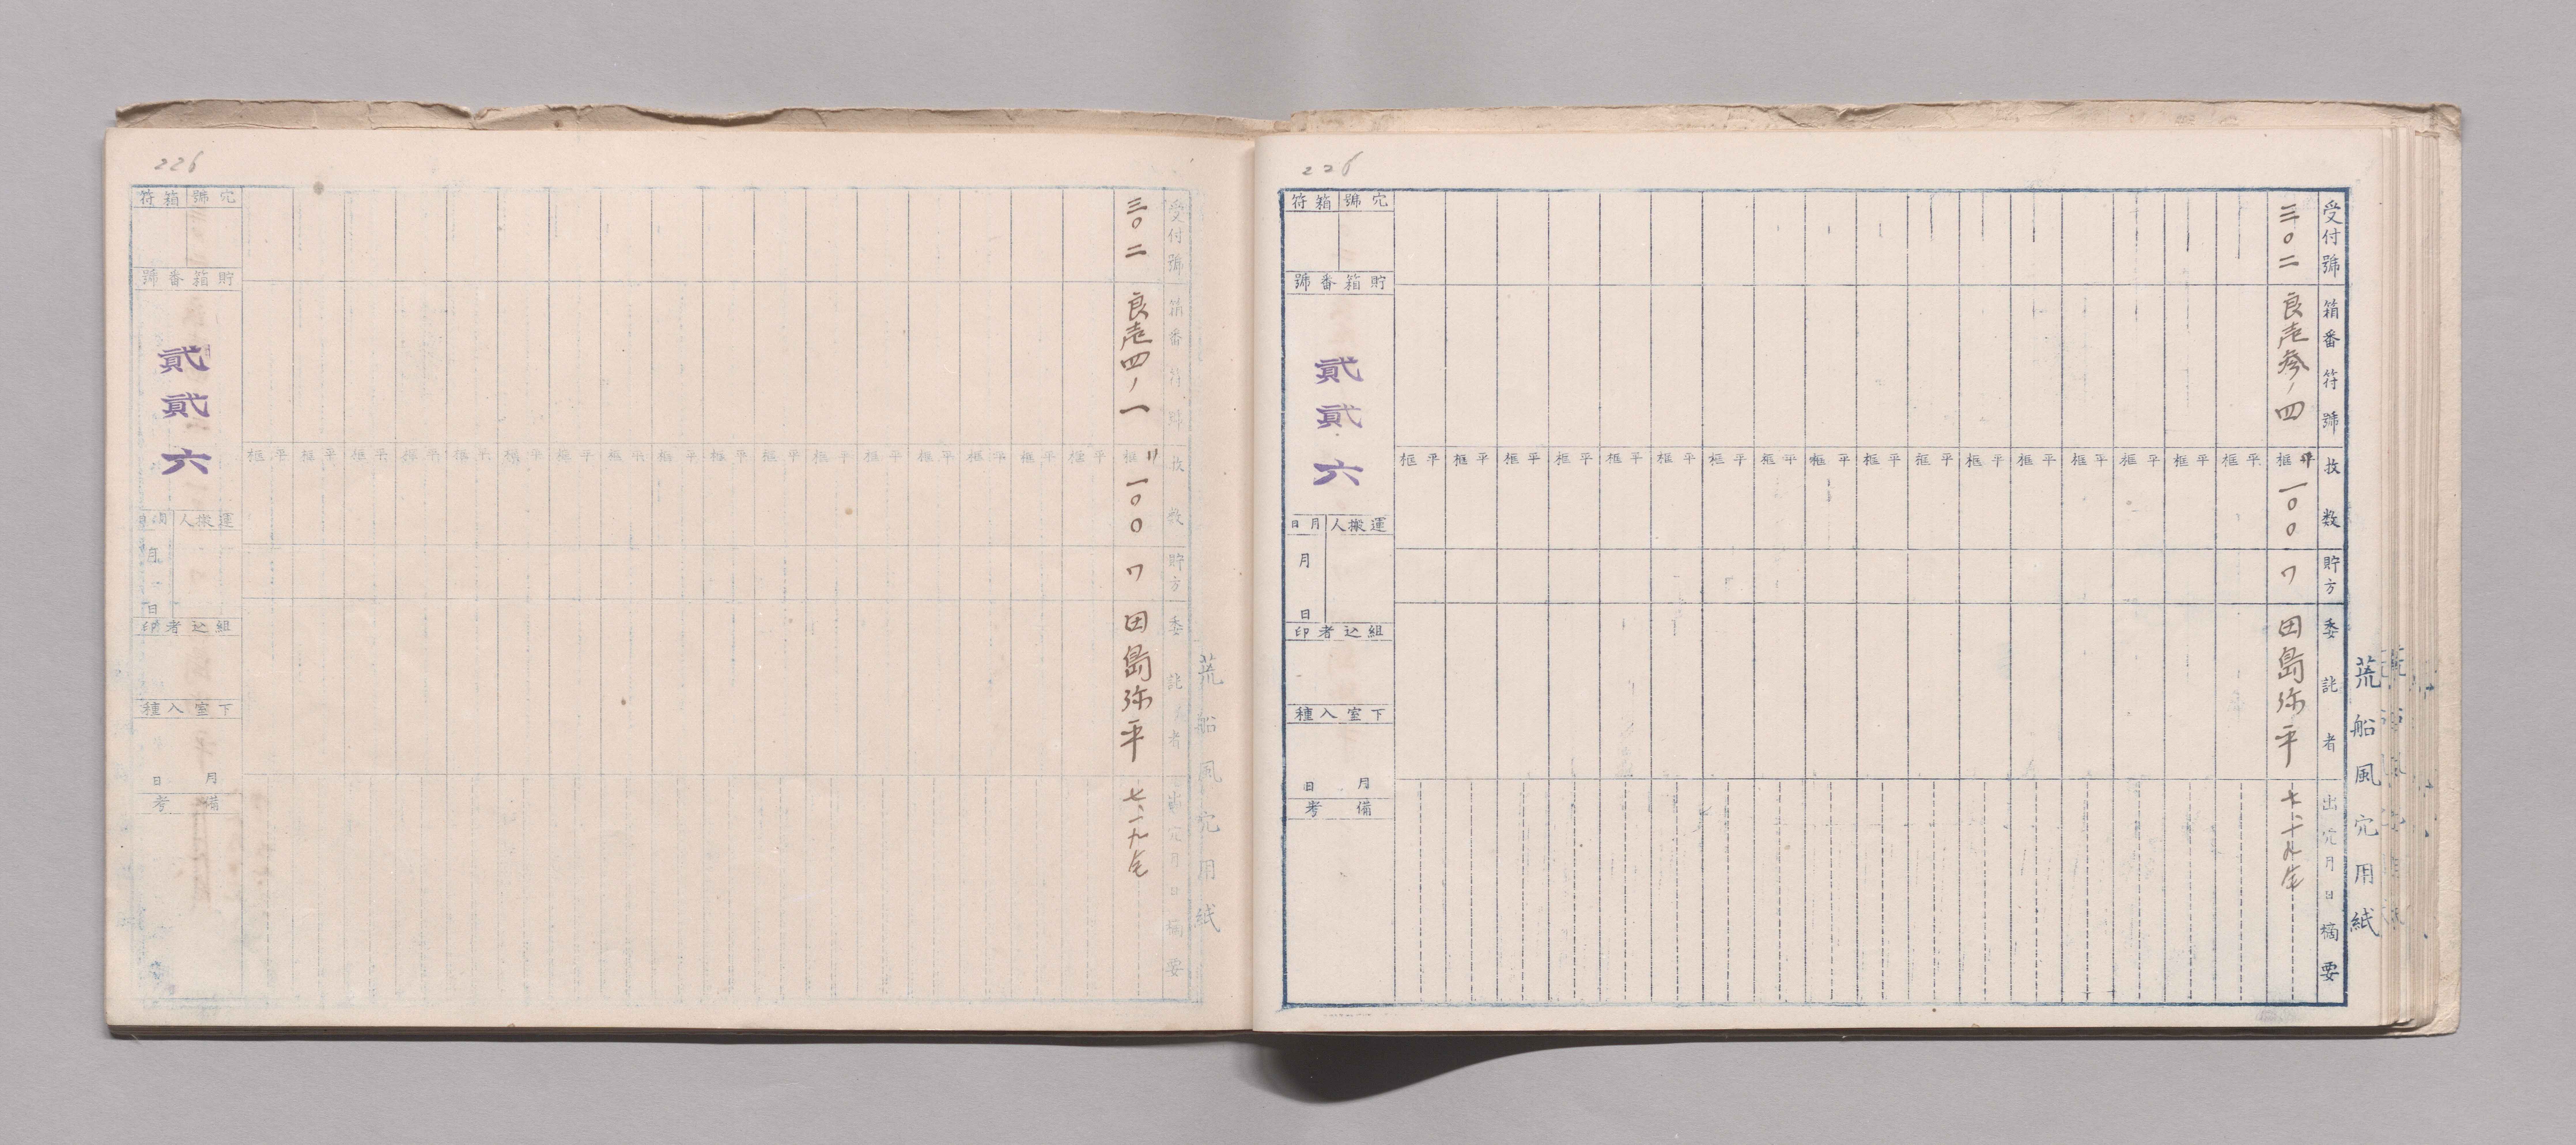 226
荒船風穴用紙
受付號
箱番符號
枚数
貯方
委託者
出穴月日摘要
三〇二
良壱参ノ四
平框
一〇〇
ワ
田島弥平
七、十九
平框 平框 平框 平框 平框 平框 平框 平框 平框 平框 平框 平框 平框 平框 平框 平框 平框
穴號
箱符
貯箱番號
貳貳六
運搬人
月日
月 日
組込者印
下室入種
月 日
備考
226
荒船風穴用紙
受付號
箱番符號
枚数
貯方
委託者
出穴月日摘要
三〇二
良壱四ノ一
框
一〇〇
ワ
田島弥平
七、一九
平框 平框 平框 平框 平框 平框 平框 平框 平框 平框 平框 平框 平框 平框 平框 平框 平框
穴號
箱符
貯箱番號
貳貳六
運搬人
月 日
組込者印
下室入種
月 日
備考